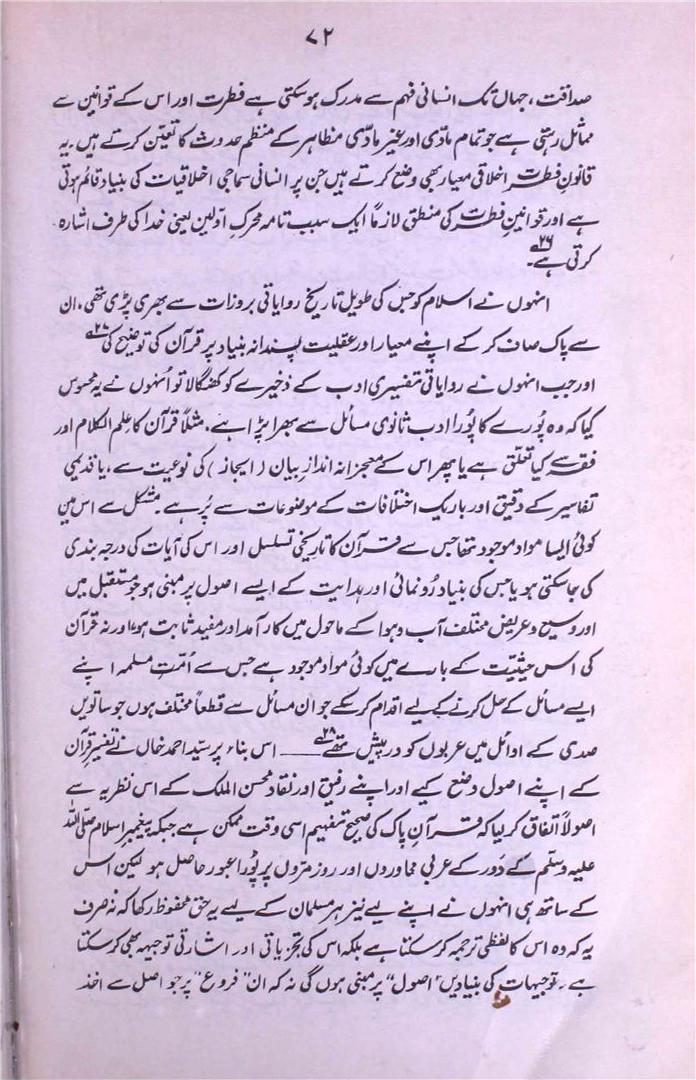 ۷۲
صداقت، جہاں تک انسانی فہم سے مدرک ہوسکتی ہے فطرت اور اس کے قوانین سے
مماثل رہتی ہے جو تمام مادّی اور غیر مادّی مظاہر کے منظم حدوث کا تعیّن کرتے ہیں۔ یہ
قانونِ فطرت اخلاقی معیار بھی وضع کرتے ہیں جن پر انسانی سماجی اخلاقیات کی بنیاد قائم ہوتی
ہے اور قوانینِ فطرت کی منطق لازماً ایک سبب تامہ محرکِ اوّلین یعنی خدا کی طرف اشارہ
کرتی ہے۔ ۲۶
انہوں نے اسلام کو جس کی طویل تاریخ روایاتی بروزات سے بھری پڑی تھی، ان
سے پاک صاف کر کے اپنے معیار اور عقلیت پسندانہ بنیاد پر قرآن کی توضیح کی ۲۷
اور جب انہوں نے روایاتی تفسیری ادب کے ذخیرے کو کھنگالا تو اُنہوں نے یہ محسوس
کیا کہ وہ پُورے کا پُورا ادب ثانوی مسائل سے بھرا پڑا ہے، مثلاً قرآن کا علم الکلام اور
فقہ سے کیا تعلق ہے یا پھر اس کے معجزانہ اندازِ بیان (ایجاز) کی نوعیت سے، یا قدیمی
تفاسیر کے دقیق اور باریک اختلافات کے موضوعات سے پُر ہے۔ مشکل سے اس میں
کوئی ایسا مواد موجود تھا جس سے قرآن کا تاریخی تسلسل اور اس کی آیات کی درجہ بندی
کی جاسکتی ہو یا جس کی بنیاد رُونمائی اور ہدایت کے ایسے اصول پر مبنی ہو جو مستقبل میں
اور وسیع و عریض مختلف آب و ہوا کے ماحول میں کارآمد اور مفید ثابت ہو، اور نہ قرآن
کی اس حیثیت کے بارے میں کوئی مواد موجود ہے جس سے اُمّتِ مسلمہ اپنے
ایسے مسائل کے حل کرنے کے لیے اقدام کرسکے جو ان مسائل سے قطعاً مختلف ہوں جو ساتویں
صدی کے اوائل میں عربوں کو درپیش تھے ۲۸ ــــ اس بناء پر سیّد احمد خاں نے تفسیرِ قرآن
کے اپنے اصول وضع کیے اور اپنے رفیق اور نقاد محسن الملک کے اس نظریہ سے
اصولاً اتفاق کر لیا کہ قرآنِ پاک کی صحیح تفہیم اسی وقت ممکن ہے جبکہ پیغمبرِ اسلام صلّی اللہ
علیہ وسلّم کے دَور کے عربی محاوروں اور روزمرّوں پر پُورا عبور حاصل ہو لیکن اس
کے ساتھ ہی انہوں نے اپنے لیے نیز ہر مسلمان کے لیے یہ حق محفوظ رکھا کہ نہ صرف
یہ کہ وہ اس کا لفظی ترجمہ کرسکتا ہے بلکہ اس کی تجزیاتی اور اشارتی توجیہہ بھی کرسکتا
ہے۔ توجیہات کی بنیادیں "اصول" پر مبنی ہوں گی نہ کہ ان "فروع" پر جو اصل سے اخذ